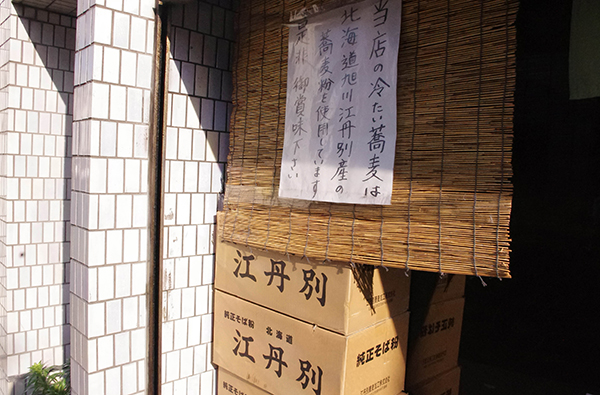 当店の冷たい蕎麦は
北海道旭川江丹別産の
蕎麦粉を使用しています
是非御賞味下さい
江丹別
純正そば粉 北海道
江丹別
純正そば粉
純正そば粉